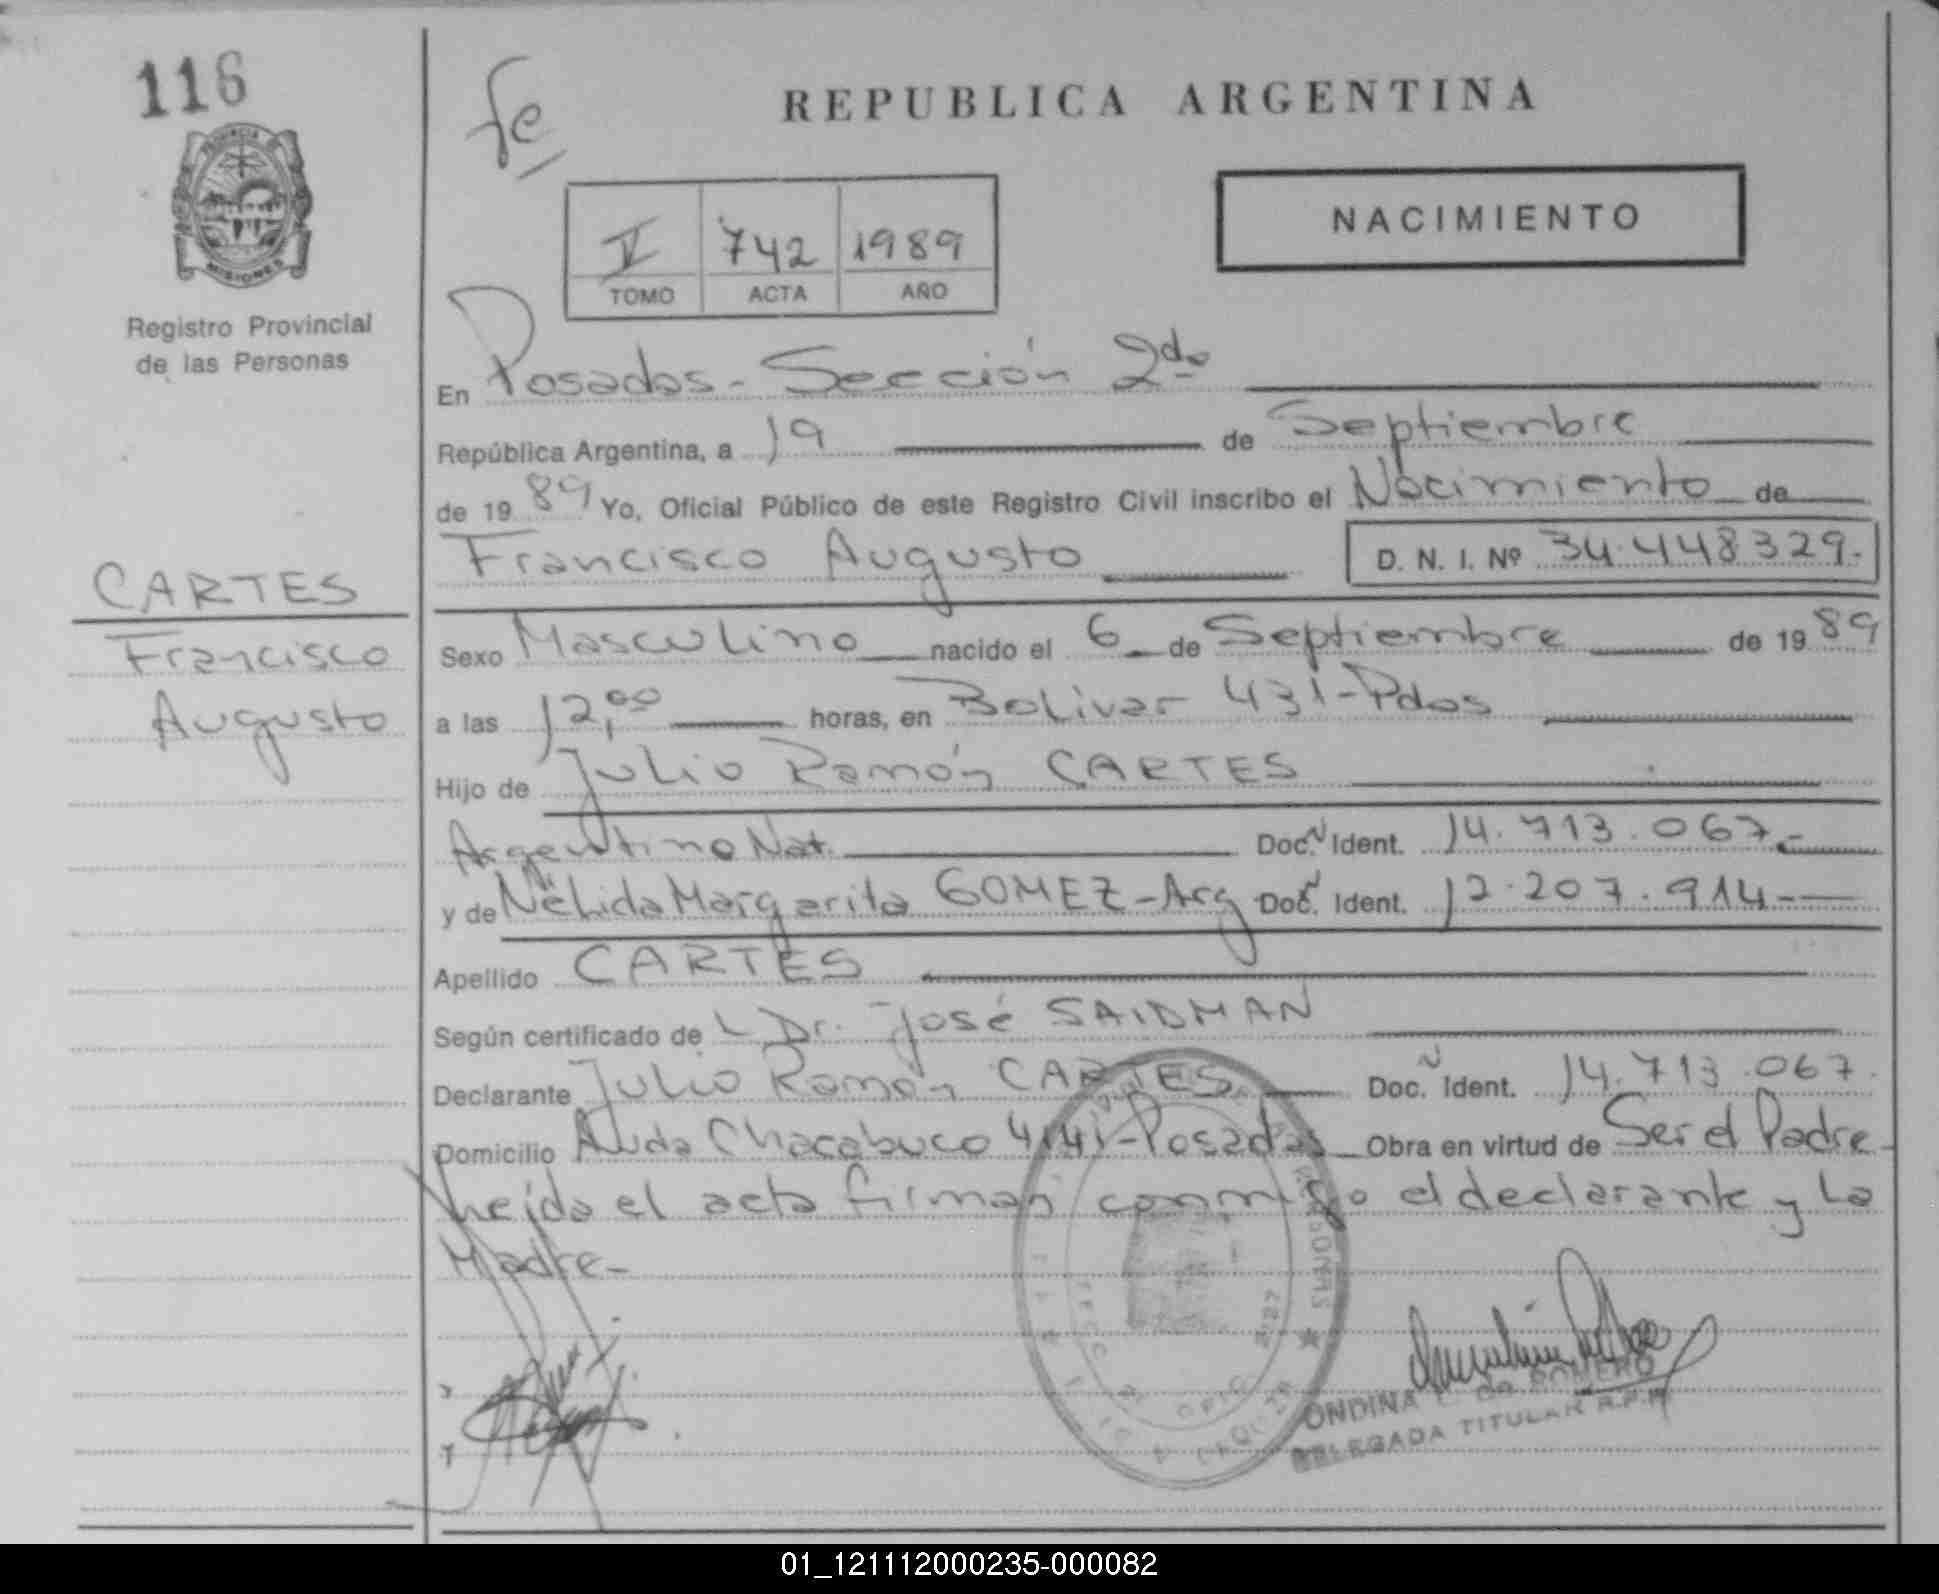 116
fe
REPUBLICA ARGENTINA
PROVINCIA
MISIONES
V 742 1989
TOMO ACTA AÑO
NACIMIENTO
Registro Provincial
de las Personas
En Posadas - Sección 2da
República Argentina, a 19 de Septiembre
de 1989 Yo, Oficial Público de este Registro Civil inscribo el Nacimiento de
Francisco Augusto D. N. I. Nº 34.448329.-
CARTES
Francisco
Augusto
Sexo Masculino nacido el 6 de Septiembre de 1989
a las 12,00 horas, en Bolivar 431-Pdas
Hijo de Julio Ramón CARTES
Argentino Nat. Doc. N Ident. 14.713.067.-
y de Nélida Margarita GOMEZ - Arg Doc. N Ident. 12.207.914.-
Apellido CARTES
Según certificado de L Dr. José SAIDMAN
Declarante Julio Ramón CARTES Doc. N Ident. 14.713.067.
Domicilio Avda Chacabuco 4141-Posadas Obra en virtud de Ser el Padre-
Leída el acta firman conmigo el declarante y la
Madre-
PERSONAS
ONDINA DE ROMERO
DELEGADA TITULAR R.P.P.
01_121112000235-000082